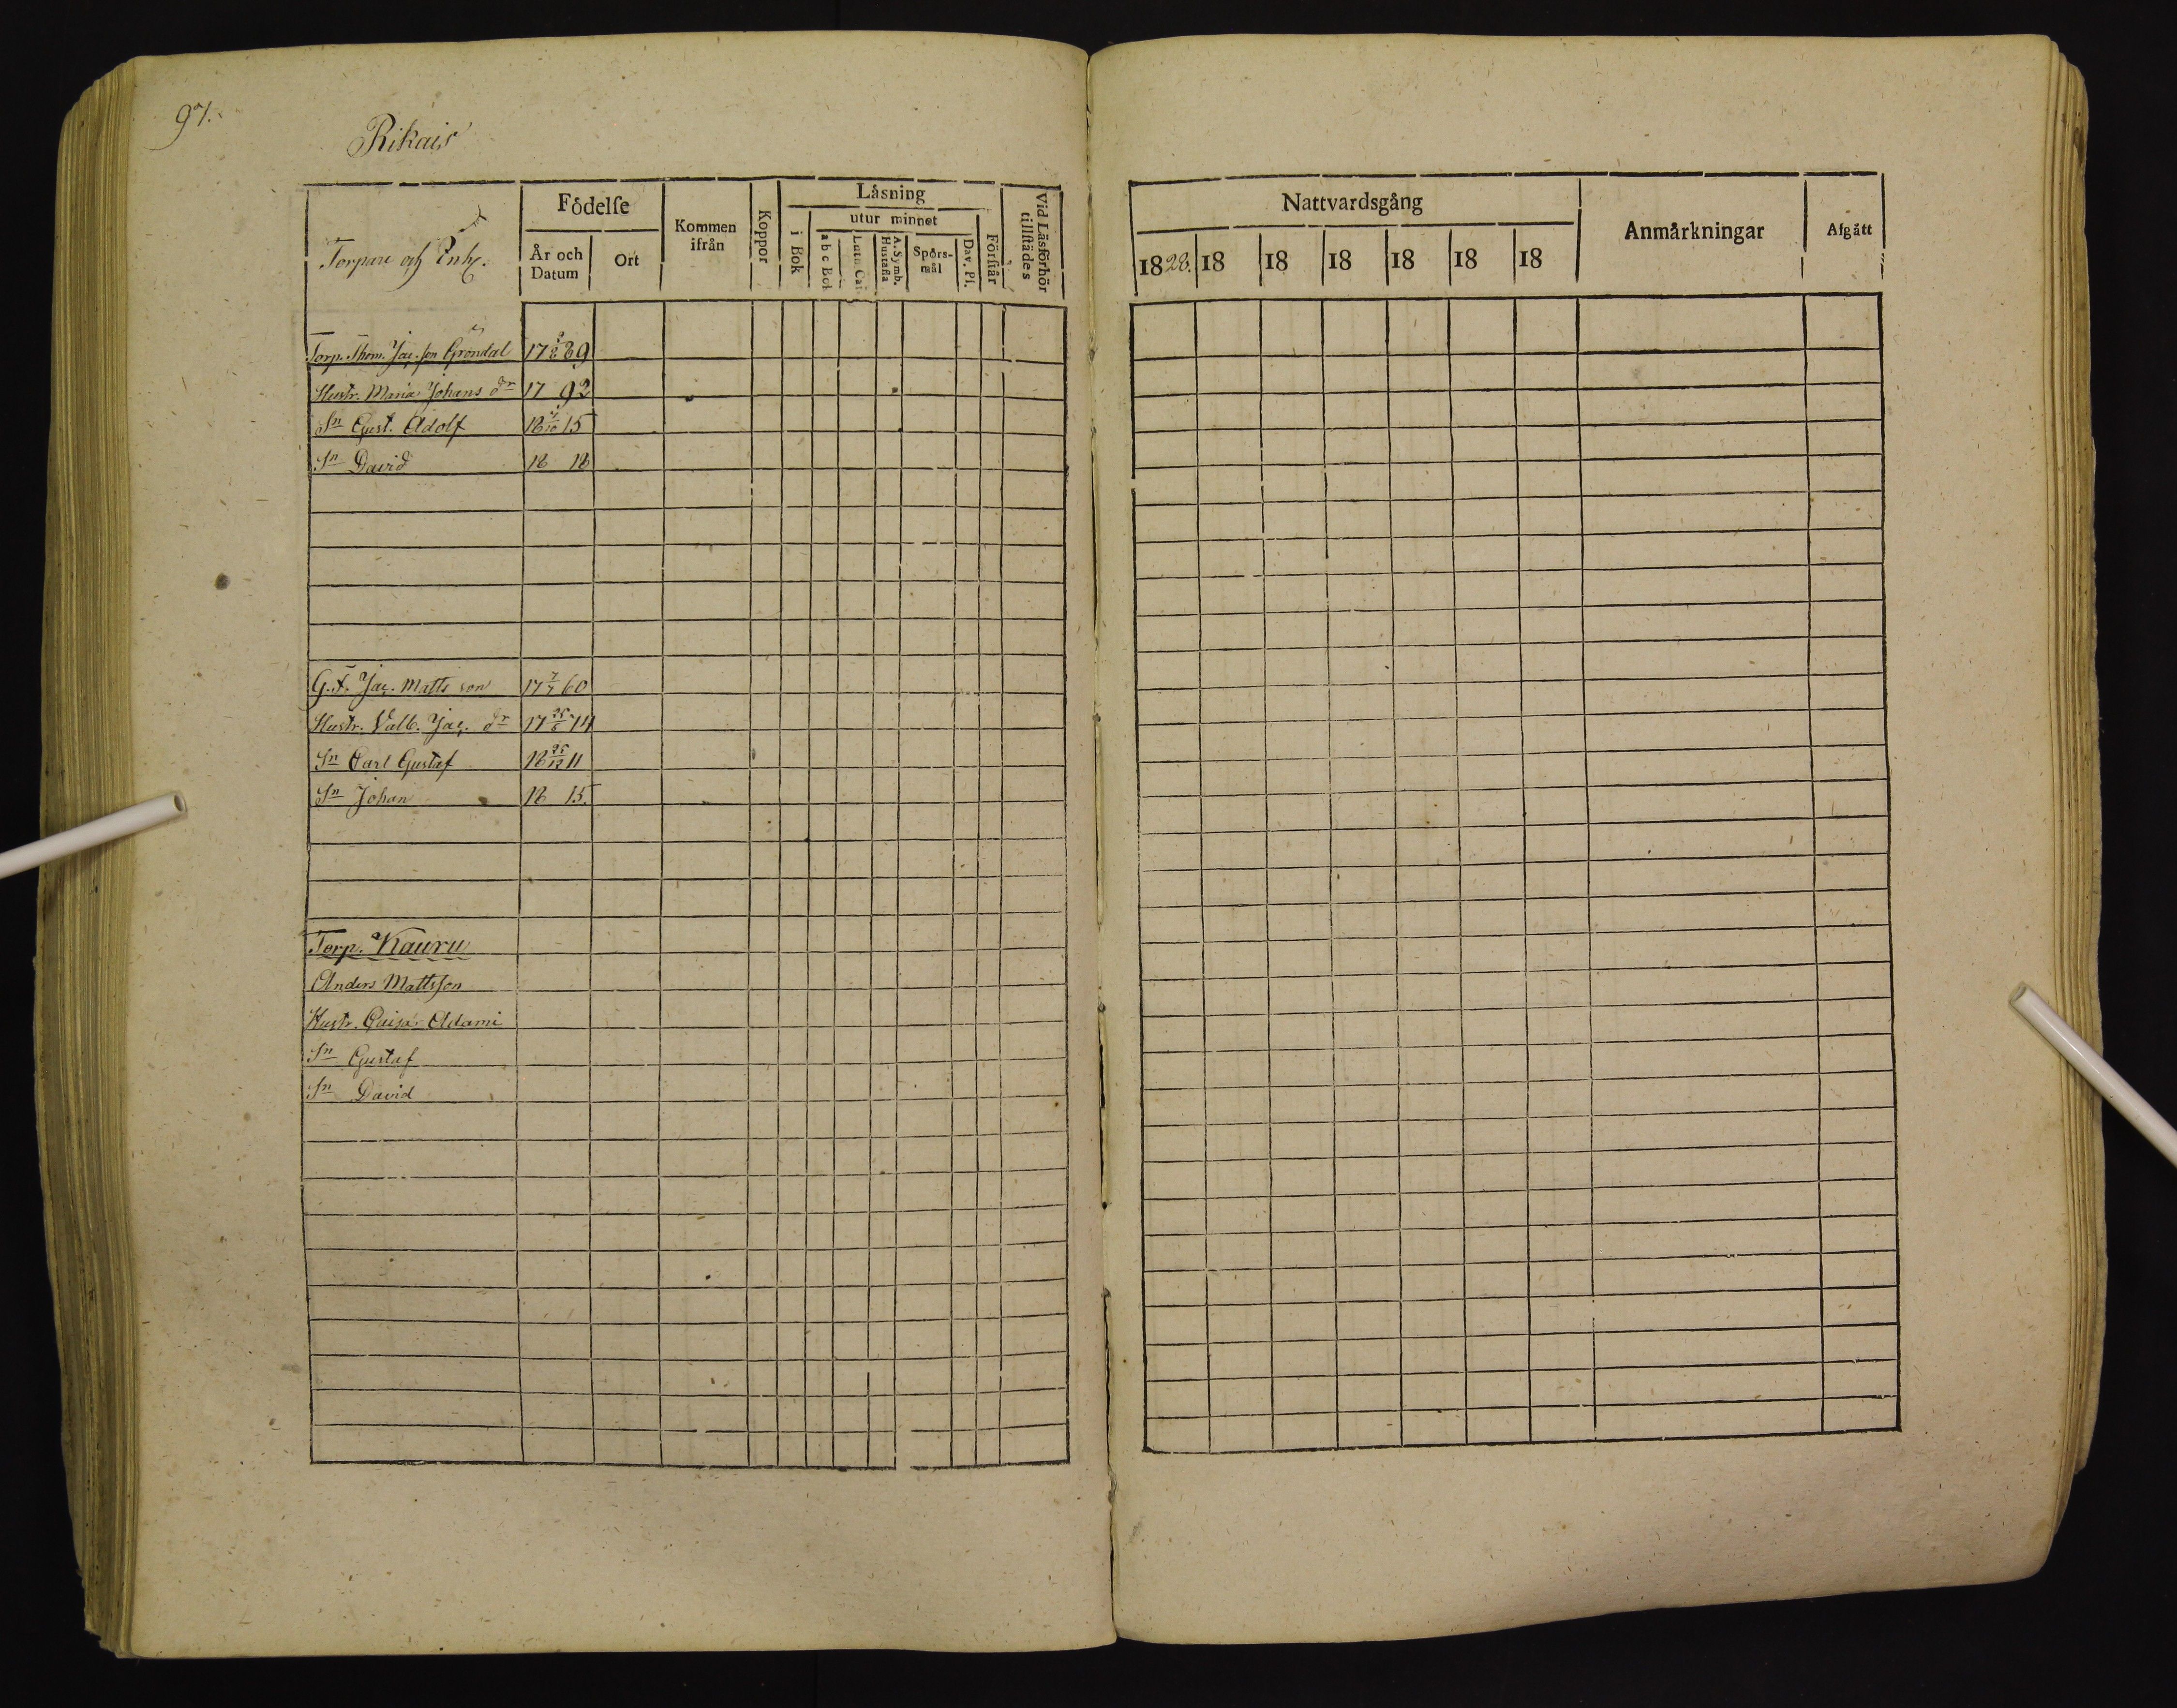 97.
Rikais
Torpare och Enk.
Födelse
År och Datum
Ort
Kommen ifrån
Koppor
Låsning
i Bok
utur minnet
a b c Bok
Luth Cat.
A. Symb. Hustafla
Spörsmål
Dav. Ps.
Förstår
Vid Läsförhör tillstädes
Nattvardsgång
1828. 18 18 18 18 18 18
Anmärkningar
Afgått
Torp. Thom. Jac. son Gröndal 17 89
Hustr. Maria Johans dr 17 92
Sn Gust. Adolf 18 15
Sn David 18 18
G.t. Jac. Matts son 17 7/7 60
Hustr. Valb. Jac. dr 17 74
Sn Carl Gustaf 18 25/12 11
Sn Johan 18 15.
Torp. Kauru
Anders Mattsson
Hustr. Caisa Adami
Sn Gustaf
Sn David